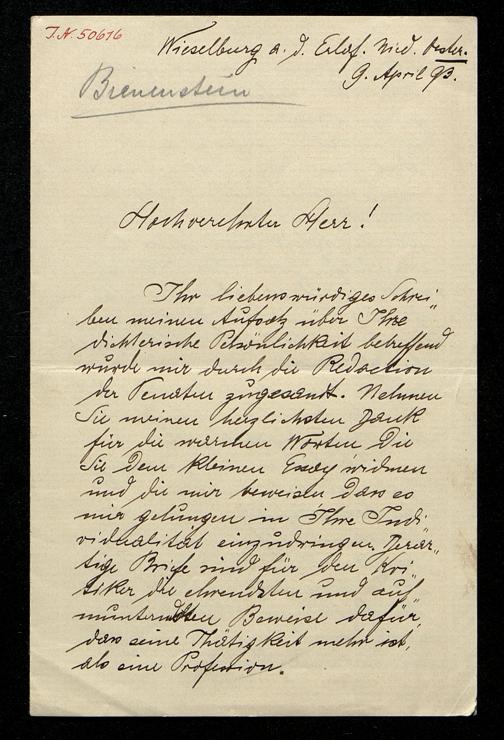 I.N. 50616
Wieselburg a. d. Erlaf. Nied. Oester.
9. April 93.
Bienenstein
Hochverehrter Herr!
Ihr liebenswürdiges Schrei-
ben meinen Aufsatz über Ihre
dichterische Persönlichkeit betreffend
wurde mir durch die Redaction
der Penaten zugesandt. Nehmen
Sie meinen herzlichsten Dank
für die warmen Worten die
Sie dem kleinen Essay widmen
und die mir beweisen dass es
mir gelungen in Ihre Indi-
vidualität einzudringen. Derar-
tige Briefe sind für den Kri-
tiker die ehrendsten und auf-
munterndsten Beweise dafür,
dass seine Thätigkeit mehr ist,
als eine Profession.